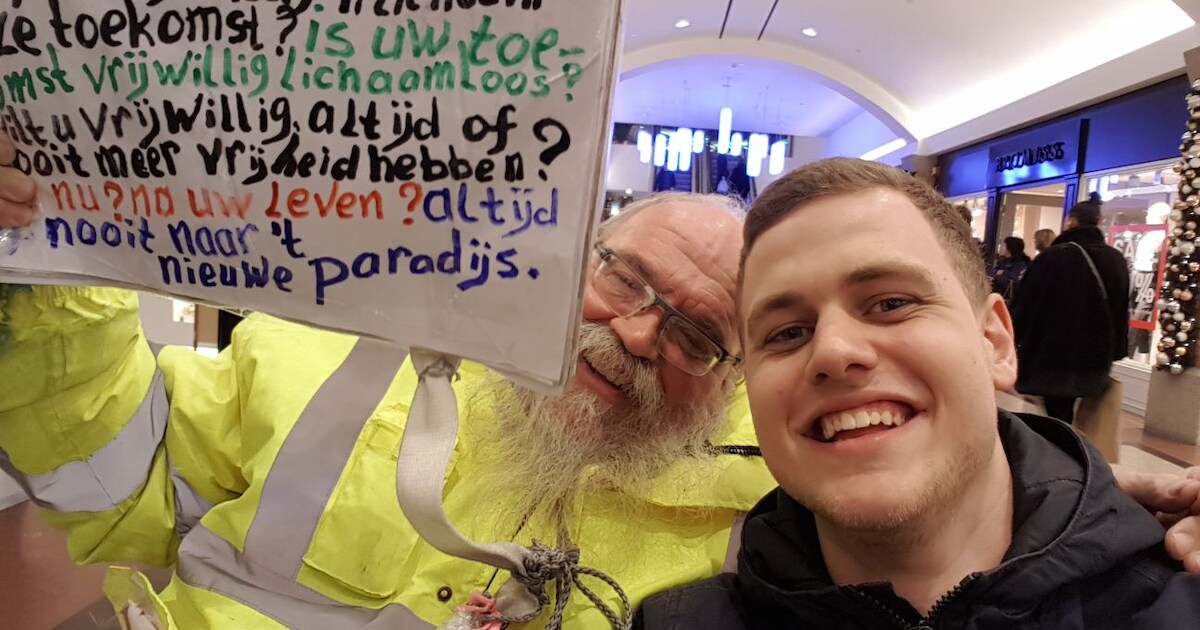 toekomst? is uw toe-
omst vrijwillig lichaamloos?
ilt u vrijwillig, altijd of
ooit meer vrijheid hebben?
nu? na uw leven? altijd
nooit naar 't
nieuwe paradijs.